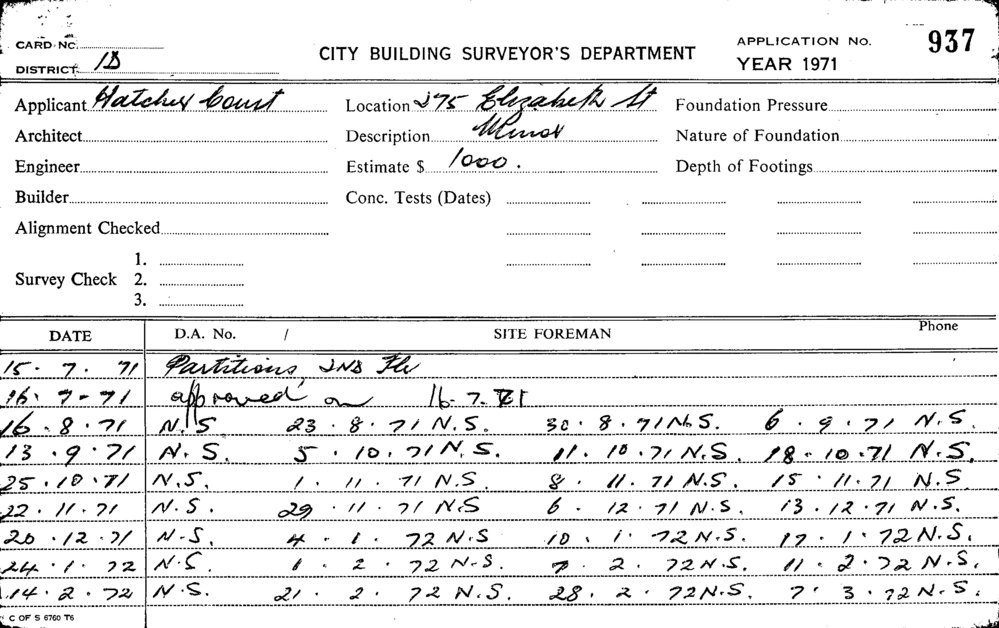 CARD NO.
DISTRICT 1D
CITY BUILDING SURVEYOR'S DEPARTMENT
APPLICATION No. 937
YEAR 1971
Applicant Hatchex Court Location 275 Elizabeth St Foundation Pressure
Architect Description Minor Nature of Foundation
Engineer Estimate $ 1000. Depth of Footings
Builder Conc. Tests (Dates)
Alignment Checked
1.
Survey Check 2.
3.
DATE D.A. No. / SITE FOREMAN Phone
15. 7. 71 Partitions, 2ND Flr
16. 7-71 approved on 16-7-71
16.8.71 N.S 23.8.71 N.S. 30.8.71 N.S. 6.9.71 N.S.
13.9.71 N.S. 5.10.71 N.S. 11.10.71 N.S. 18.10.71 N.S.
25.10.71 N.S. 1.11.71 N.S 8.11.71 N.S. 15.11.71 N.S
22.11.71 N.S. 29.11.71 N.S 6.12.71 N.S. 13.12.71 N.S.
20.12.71 N.S. 4.1.72 N.S 10.1.72 N.S. 17.1.72 N.S.
24.1.72 N.S. 1.2.72 N.S. 7.2.72 N.S. 11.2.72 N.S.
14.2.72 N.S. 21.2.72 N.S. 28.2.72 N.S. 7.3.72 N.S.
C OF S 6760 T6